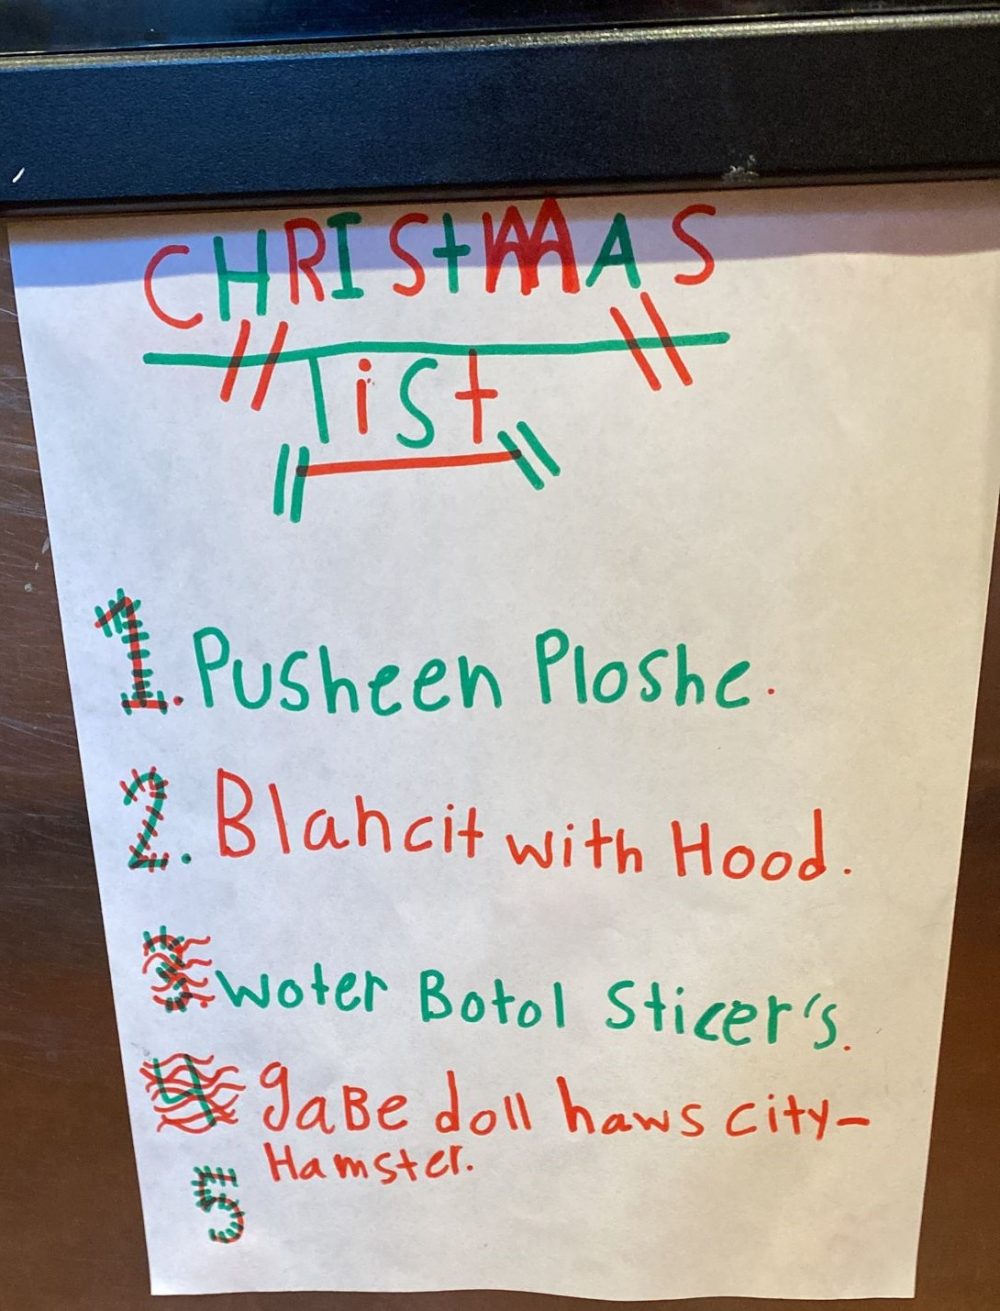 CHRIStMAS
liSt
1. Pusheen Ploshe.
2. Blancit with Hood.
3 woter Botol Sticer's.
4 gaBe doll haws city-
Hamster.
5